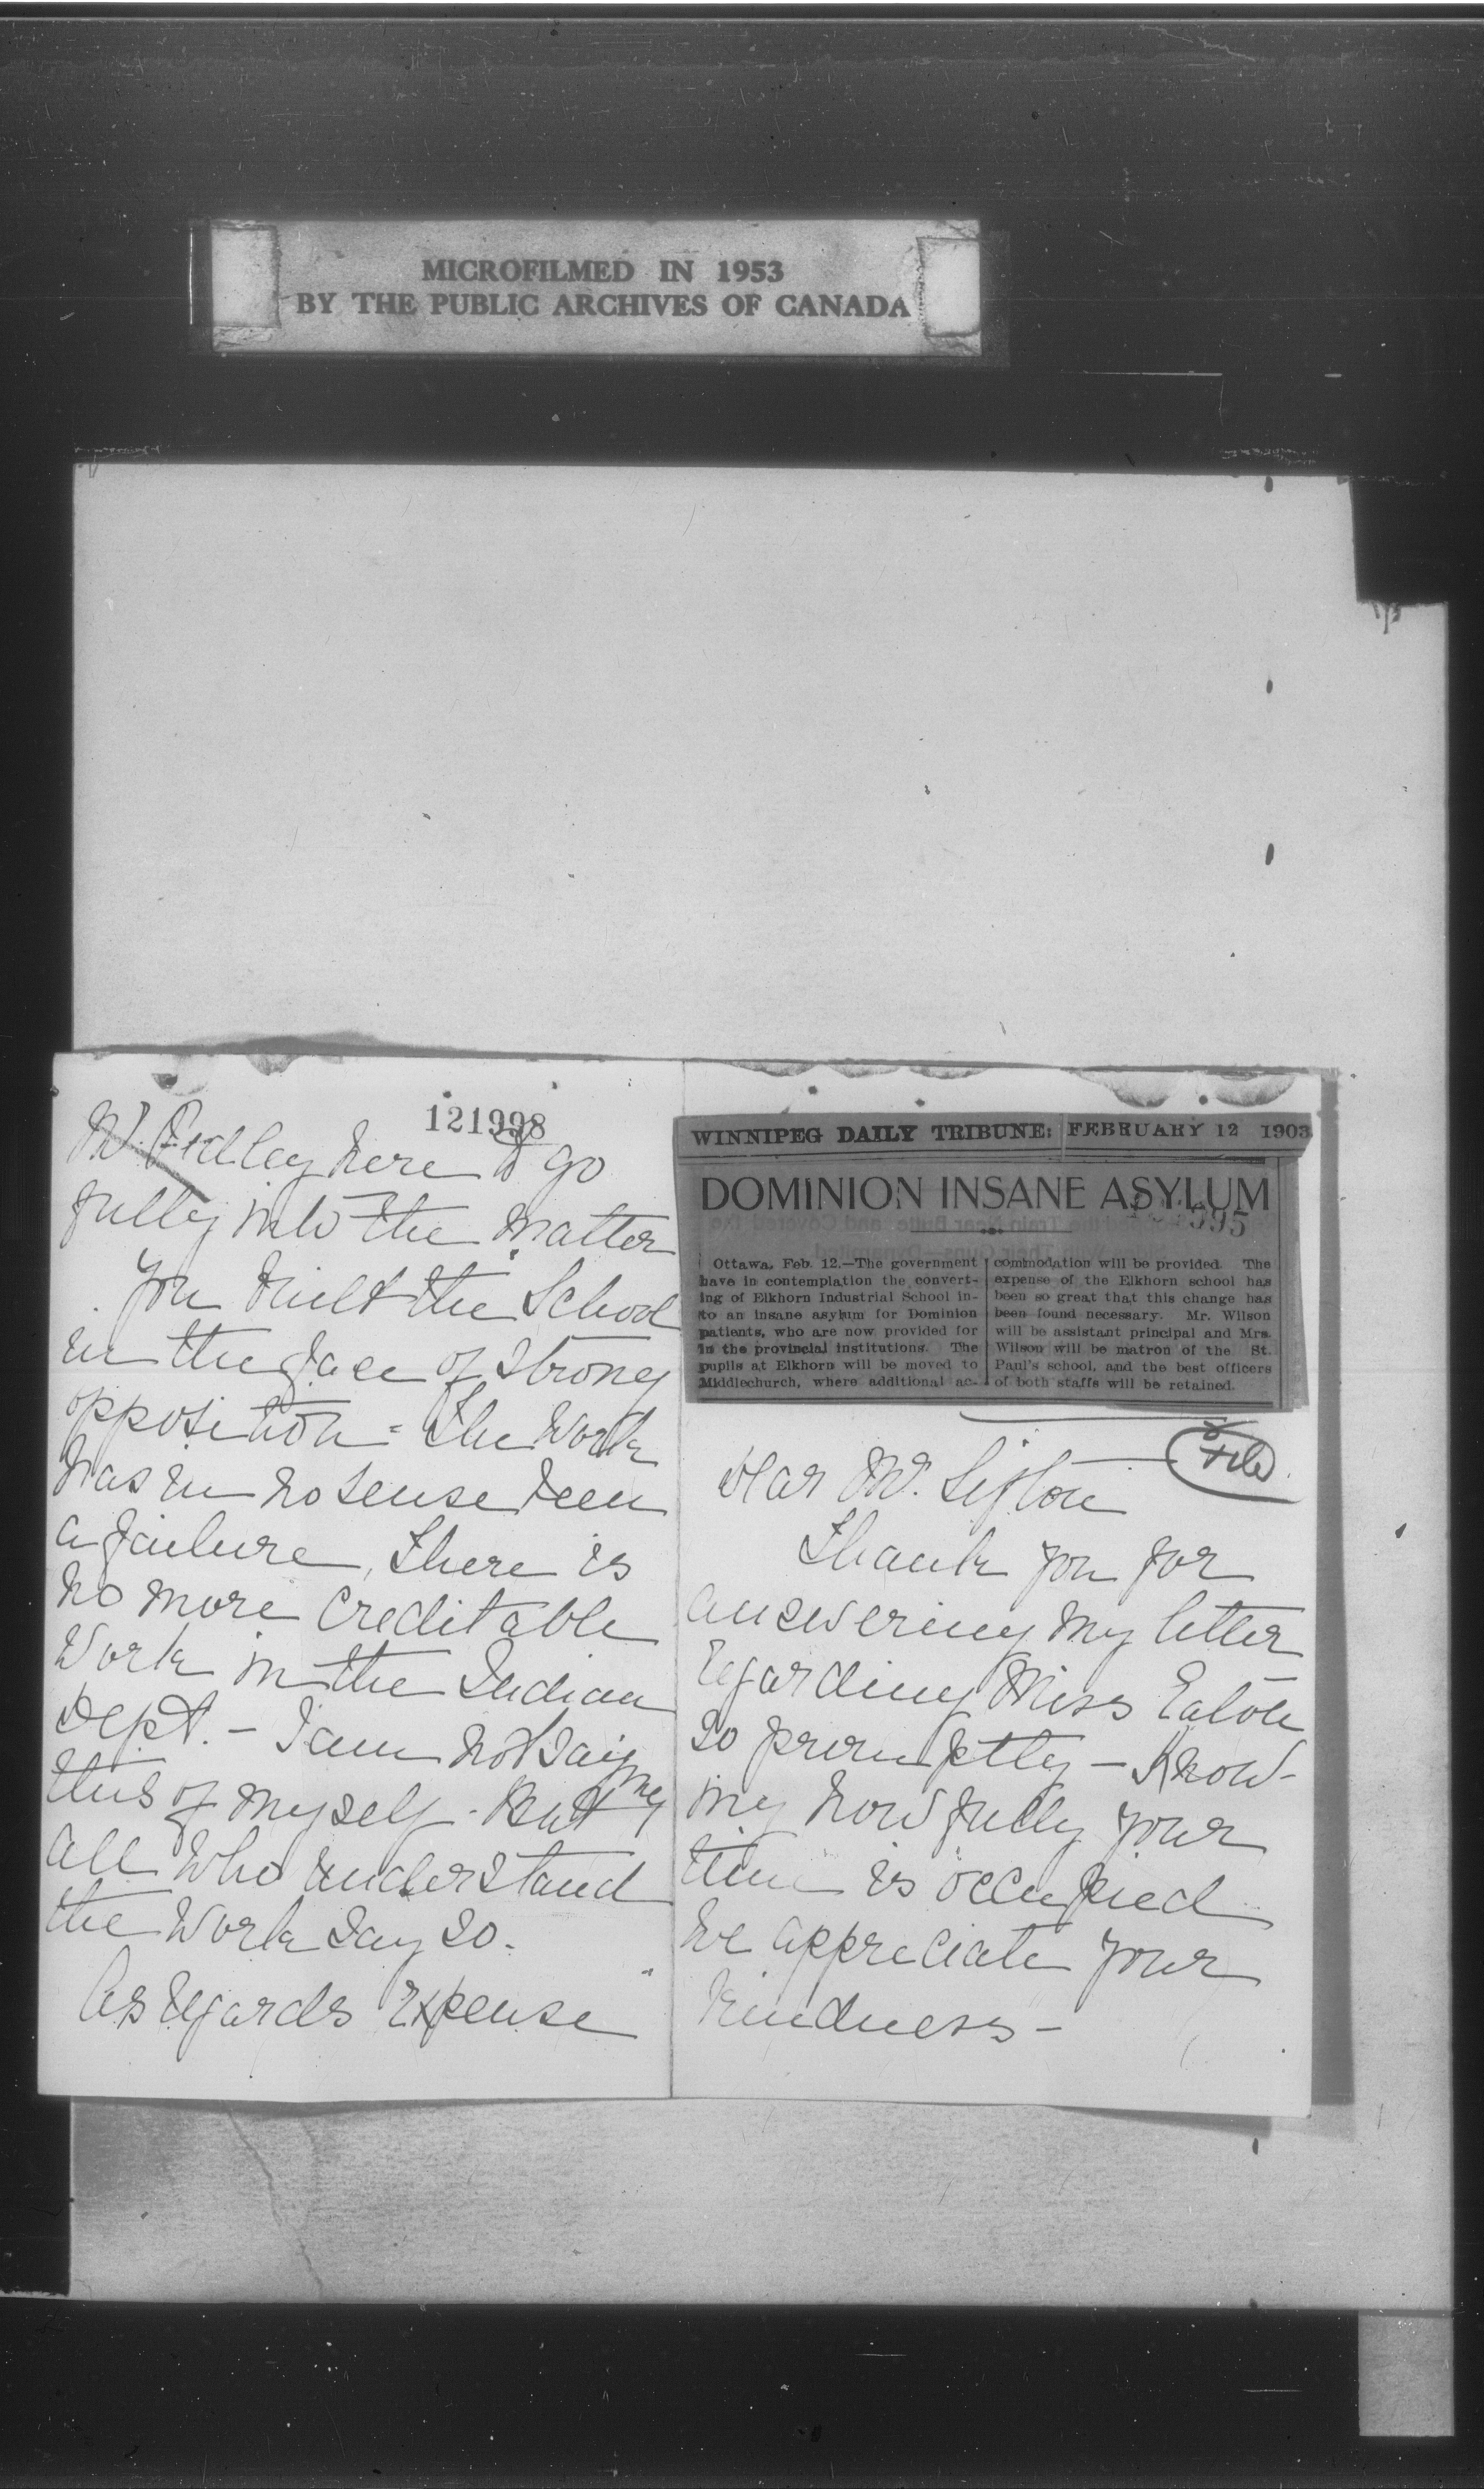 MICROFILMED IN 1953
BY THE PUBLIC ARCHIVES OF CANADA
121998
Mr. Pedley here to go
fully into the matter
You built the School
in the face of strong
opposition - The Work
has in no sense been
a failure, There is
no more creditable
Work in the Indian
Dept. - I am not saying
this of myself - But
all who understand
the Work say so.
As regards expense
WINNIPEG DAILY TRIBUNE: FEBRUARY 12 1903
DOMINION INSANE ASYLUM
995
Ottawa, Feb. 12.—The government
have in contemplation the convert-
ing of Elkhorn Industrial School in-
to an insane asylum for Dominion
patients, who are now provided for
in the provincial institutions. The
pupils at Elkhorn will be moved to
Middlechurch, where additional ac-
commodation will be provided. The
expense of the Elkhorn school has
been so great that this change has
been found necessary. Mr. Wilson
will be assistant principal and Mrs.
Wilson will be matron of the St.
Paul's school, and the best officers
of both staffs will be retained.
File
Dear Mr. Sifton
Thank you for
answering my letter
regarding Miss Eaton
so promptly - Know-
ing how fully your
time is occupied
we appreciate your
kindness -